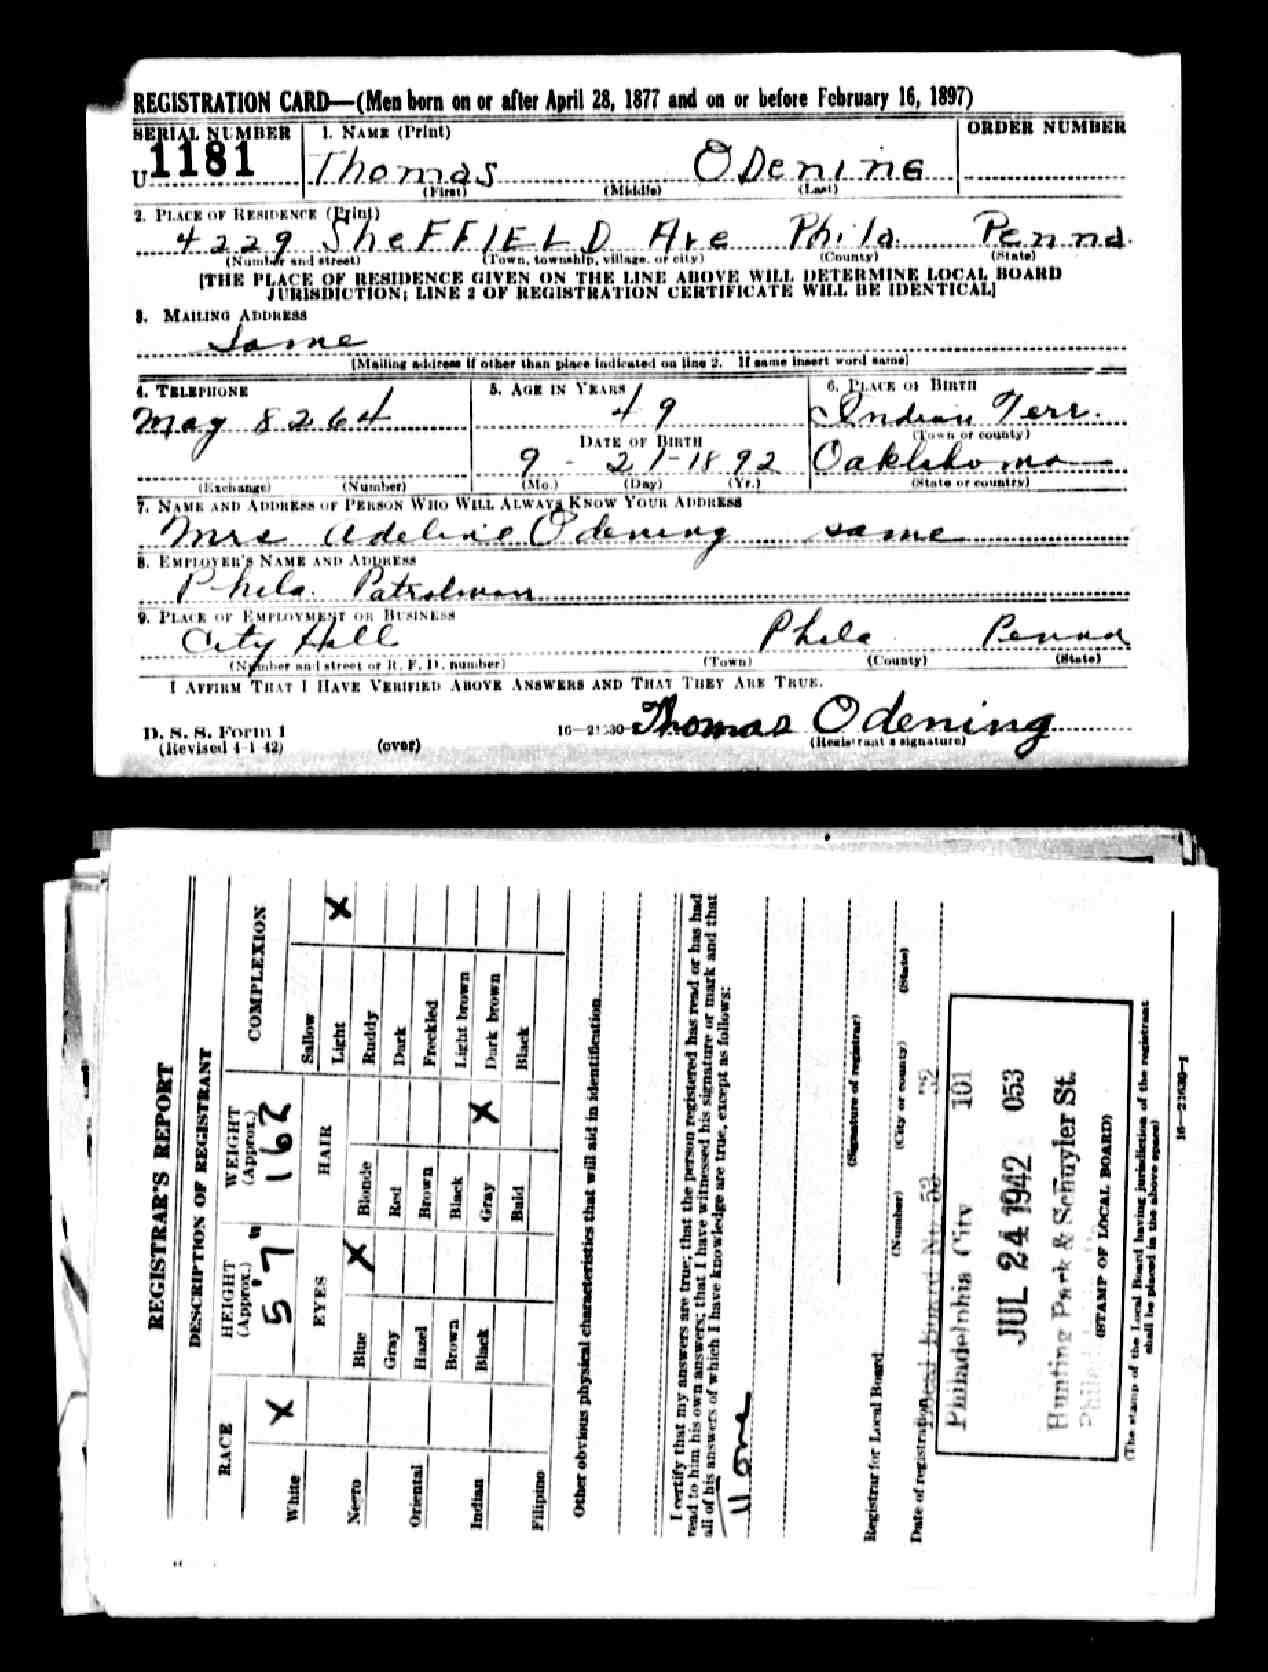 REGISTRATION CARD—(Men born on or after April 28, 1877 and on or before February 16, 1897)
SERIAL NUMBER 1. NAME (Print) ORDER NUMBER
U 1181 Thomas ODening
(First) (Middle) (Last)
2. PLACE OF RESIDENCE (Print)
4229 SheFFIELD Ave Phila. Penna.
(Number and street) (Town, township, village, or city) (County) (State)
[THE PLACE OF RESIDENCE GIVEN ON THE LINE ABOVE WILL DETERMINE LOCAL BOARD
JURISDICTION; LINE 2 OF REGISTRATION CERTIFICATE WILL BE IDENTICAL]
3. MAILING ADDRESS
Same
[Mailing address if other than place indicated on line 2. If same insert word same]
4. TELEPHONE 5. AGE IN YEARS 6. PLACE OF BIRTH
May 8264 49 Indian Terr.
DATE OF BIRTH (Town or county)
9 - 21-1892 Oaklahoma
(Exchange) (Number) (Mo.) (Day) (Yr.) (State or country)
7. NAME AND ADDRESS OF PERSON WHO WILL ALWAYS KNOW YOUR ADDRESS
Mrs Adeline Odening same
8. EMPLOYER'S NAME AND ADDRESS
Phila. Patrolman
9. PLACE OF EMPLOYMENT OR BUSINESS
City Hall Phila Penna
(Number and street or R. F. D. number) (Town) (County) (State)
I AFFIRM THAT I HAVE VERIFIED ABOVE ANSWERS AND THAT THEY ARE TRUE.
D. S. S. Form 1 16—21630- Thomas Odening
(Revised 4-1-42) (over) (Registrant's signature)
REGISTRAR'S REPORT
DESCRIPTION OF REGISTRANT
RACE HEIGHT (Approx.) WEIGHT (Approx.) COMPLEXION
5'7" 162
White X
Negro
Oriental
Indian
Filipino
EYES
Blue X
Gray
Hazel
Brown
Black
HAIR
Blonde
Red
Brown
Black
Gray X
Bald
Sallow
Light X
Ruddy
Dark
Freckled
Light brown
Dark brown
Black
Other obvious physical characteristics that will aid in identification
I certify that my answers are true; that the person registered has read or has had
read to him his own answers; that I have witnessed his signature or mark and that
all of his answers of which I have knowledge are true, except as follows:
None
(Signature of registrar)
Registrar for Local Board
(Number) (City or county) (State)
Date of registration
Local Board No. 52 52
Philadelphia City 101
JUL 24 1942 053
Hunting Park & Schuyler St.
(STAMP OF LOCAL BOARD)
(The stamp of the Local Board having jurisdiction of the registrant
shall be placed in the above space)
16—21630-1